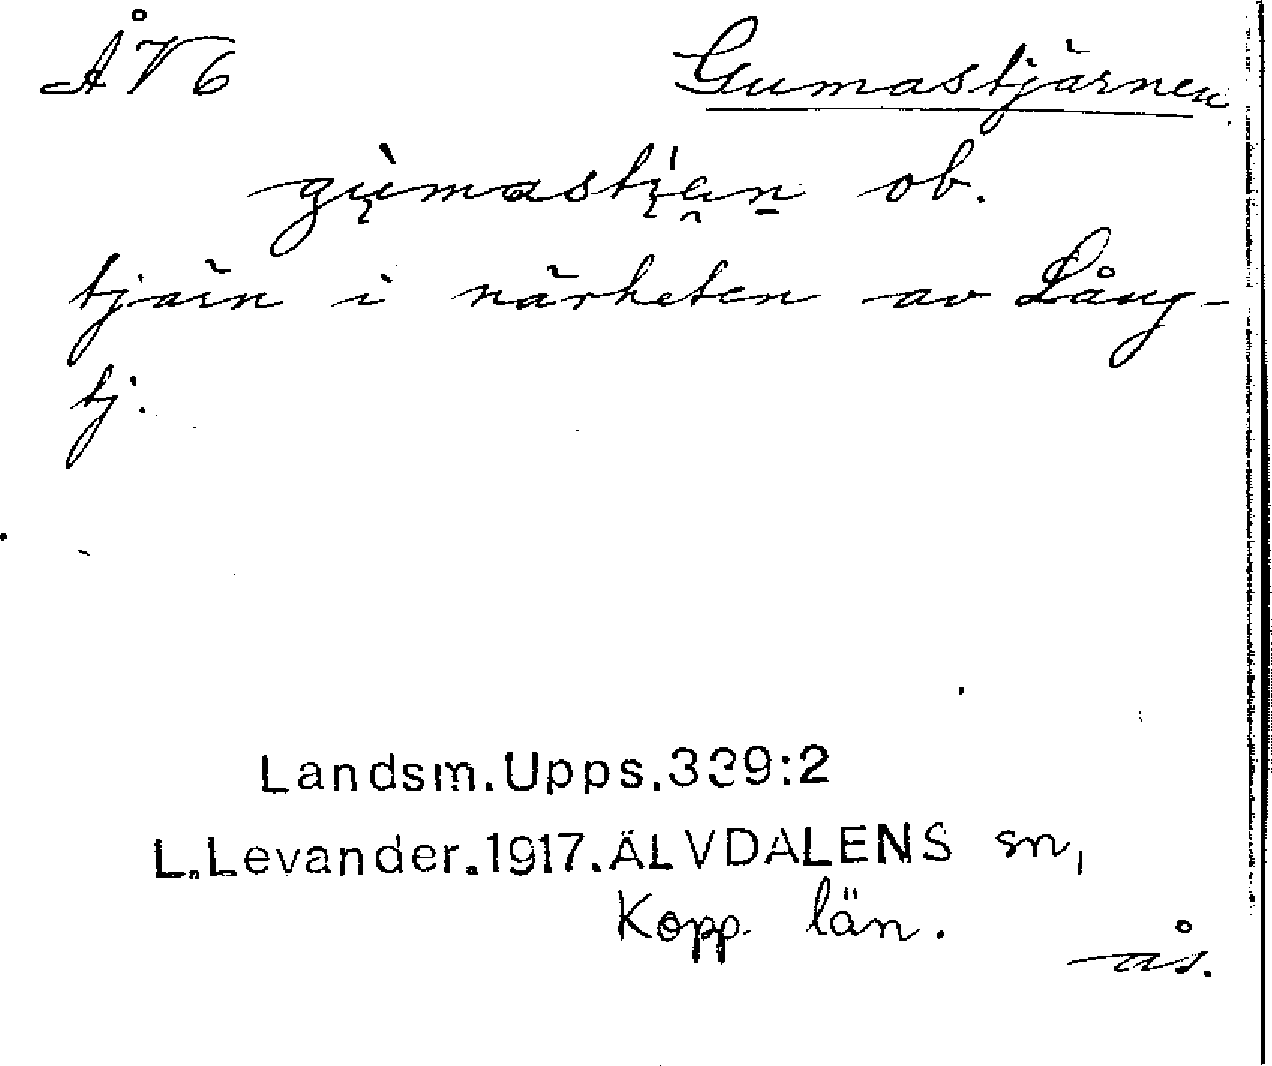 ÅV6 Gumastjärnen
gùmastjan ob.
tjärn i närheten av Lång-
tj.
Landsm.Upps.339:2
L.Levander.1917.ÄLVDALENS sn,
Kopp. län.
ås.